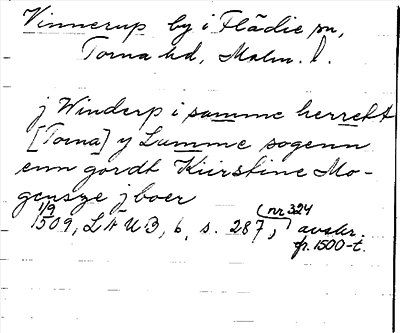 Vinnerup by i Flädie sn,
Torna hd, Malm. l.
j Winderp i samme herrett
[Torna] y Lumme sogenn
enn gordt Kiirstine Mo-
gensze j boer
1/9 1509, LÄUB, 6, s. 287, (nr 324) avskr.
fr. 1500-t.